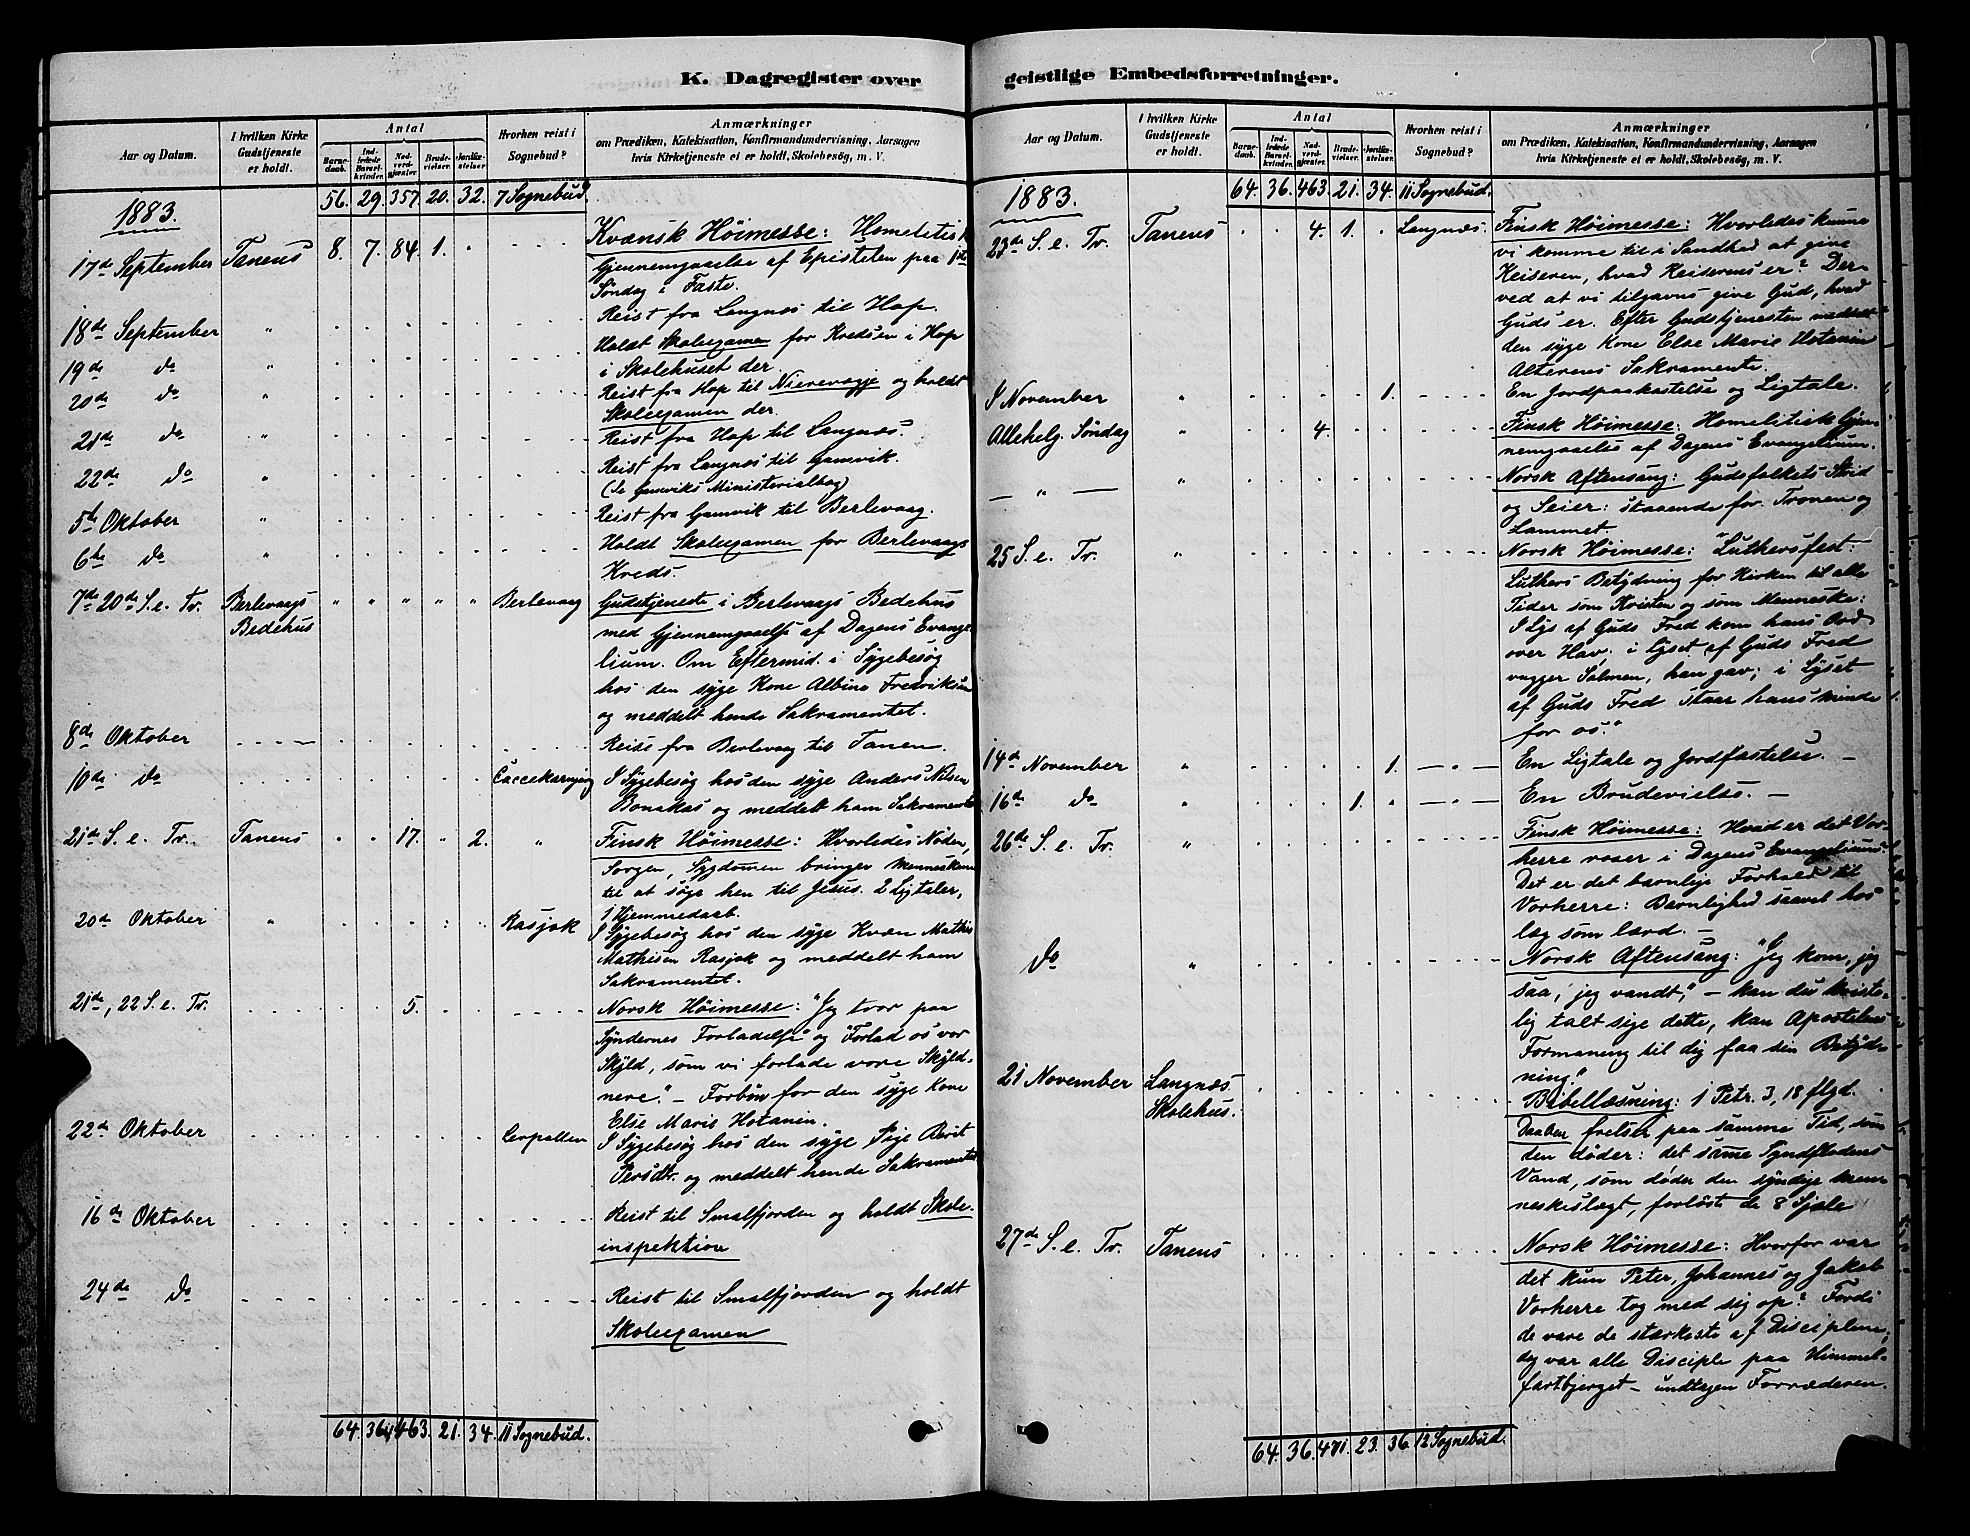 K. Dagregister over
Aar og Datum.
I hvilken Kirke Gudstjeneste er holdt.
Antal
Barnedaab.
Indledede Barselkvinder.
Nadverdgjæster.
Brudevielser.
Jordfæstelser.
Hvorhen reist i Sognebud?
Anmærkninger
om Prædiken, Katekisation, Konfirmandundervisning, Aarsagen
hvis Kirketjeneste ei er holdt, Skolebesög, m. V.
56. 29. 357. 20. 32. 7 Sognebud
1883.
17de September Tanens 8. 7. 84. 1. Kvænsk Höimesse: Homiletisk
Gjennemgaaelse af Epistelen paa 1ste
Söndag i Faste.
18de September " Reist fra Langnæs til Hop.
19de do " Holdt Skolexamen for Kredsen i Hop
i Skolehuset der.
20de do " Reist fra Hop til Nierevagje og holdt
Skolexamen der.
21de do " Reist fra Hop til Langnæs.
22de do " Reist fra Langnæs til Gamvik.
(se Gamviks Ministerialbog)
5te Oktober " Reist fra Gamvik til Berlevaag.
6te do " Holdt Skolexamen for Berlevaags
Kreds.
7de 20de S. e. Tr. Berlevaags " " " " " Berlevaag Gudstjeneste i Berlevaags Bedehus
Bedehus med Gjennemgaaelse af Dagens Evange-
lium. Om Eftermid. i Sygebesög
hos den syge Kone Albine Fredriksen
og meddelt hende Sakramentet.
8de Oktober Reise fra Berlevaag til Tanen.
10de do I Sygebesög hos den syge Anders Nilsen
Bonakas og meddelt ham Sakramentet
21de S. e. Tr. Tanens 17. " 2. " Finsk Höimesse: Hvorledes Nöden,
Sorgen, Sygdommen bringer Menneskene
til at söge hen til Jesus. 2 Ligtaler,
1 Hjemmedaab.
20de Oktober " Rasjok I Sygebesög hos den syge Kvæn Mathis
Mathisen Rasjok og meddelt ham
Sakramentet.
21de, 22 S. e. Tr. 5. Norsk Höimesse: "Jeg tror paa
Syndernes Forladelse" og "Forlad os vor
Skyld, som vi forlade vore Skyld-
nere." – Forbön for den syge Kone
Else Marie Hotanin.
22de Oktober I Sygebesög hos den syge Pige Berit
Persdtr. og meddelt hende Sakramentet
16de Oktober Reist til Smalfjorden og holdt Skole-
inspektion
24de do Reist til Smalfjorden og holdt
Skolexamen
64. 36. 463. 21. 34. 11 Sognebud.
geistlige Embedsforretninger.
Aar og Datum.
I hvilken Kirke Gudstjeneste er holdt.
Antal
Barnedaab.
Indledede Barselkvinder.
Nadverdgjæster.
Brudevielser.
Jordfæstelser.
Hvorhen reist i Sognebud?
Anmærkninger
om Prædiken, Katekisation, Konfirmandundervisning, Aarsagen
hvis Kirketjeneste ei er holdt, Skolebesög, m. V.
64. 36. 463. 21. 34. 11 Sognebud.
1883.
23de S. e. Tr. Tanens 4. 1. Langnæs. Finsk Höimesse: Hvorledes kunne
vi komme til i Sandhed at give
Keiseren, hvad Keiserens er? Der-
ved at vi tilgavns give Gud, hvad
Guds er. Efter Gudstjenesten meddelt
den syge Kone Else Marie Hotanin
Alterens Sakramente.
I November " 1. En Jordpaakastelse og Ligtale.
Allehelg. Söndag " 4. Finsk Höimesse: Homiletisk Gjen-
nemgaaelse af Dagens Evangelium.
— " — " Norsk Aftensang: Gudsfolkets Strid
og Seier: staaende for Tronen og
Lammet
25 S. e. Tr. " Norsk Höimesse: "Luthersfest."
Luthers Betydning for Kirken til alle
Tider som Kristen og som Menneske:
I Lys af Guds Fred kom hans Ord
over Hav; i Lyset af Guds Fred
vugger Salmen, han gav; i Lyset
af Guds Fred staar hans Minde
for os."
14de November " 1. — " — En Ligtale og Jordfæstelse. —
16de do " 1. " — " — En Brudevielse. —
26de S. e. Tr. " Finsk Höimesse: Hvad er det Vor-
herre roser i Dagens Evangelium?
Det er det barnlige Forhold til
Vorherre: Barnlighed saavel hos
læg som lærd. —
do " Norsk Aftensang: "Jeg kom, jeg
saa, jeg vandt," – kan du kriste-
lig talt sige dette, kan Apostelens
Formaning til dig faa sin Betyd-
ning."
21 November Langnæs Bibellæsning: 1 Petr. 3, 18 flgd.
Skolehus. Daaben frelser paa samme Tid, som
den döder: det samme Syndflodens
Vand, som döder den syndige Men-
neskeslægt, forlöste de 8 Sjæle
27de S. e. Tr. Tanens Norsk Höimesse: Hvorfor var
det kun Peter, Johannes og Jakob
Vorherre tog med sig op? Fordi
de vare de stærkeste af Disciplene;
dog var alle Disciple paa Himmel-
fartbjerget – undtagen Forræderen.
64. 36. 471. 23. 36. 12 Sognebud.